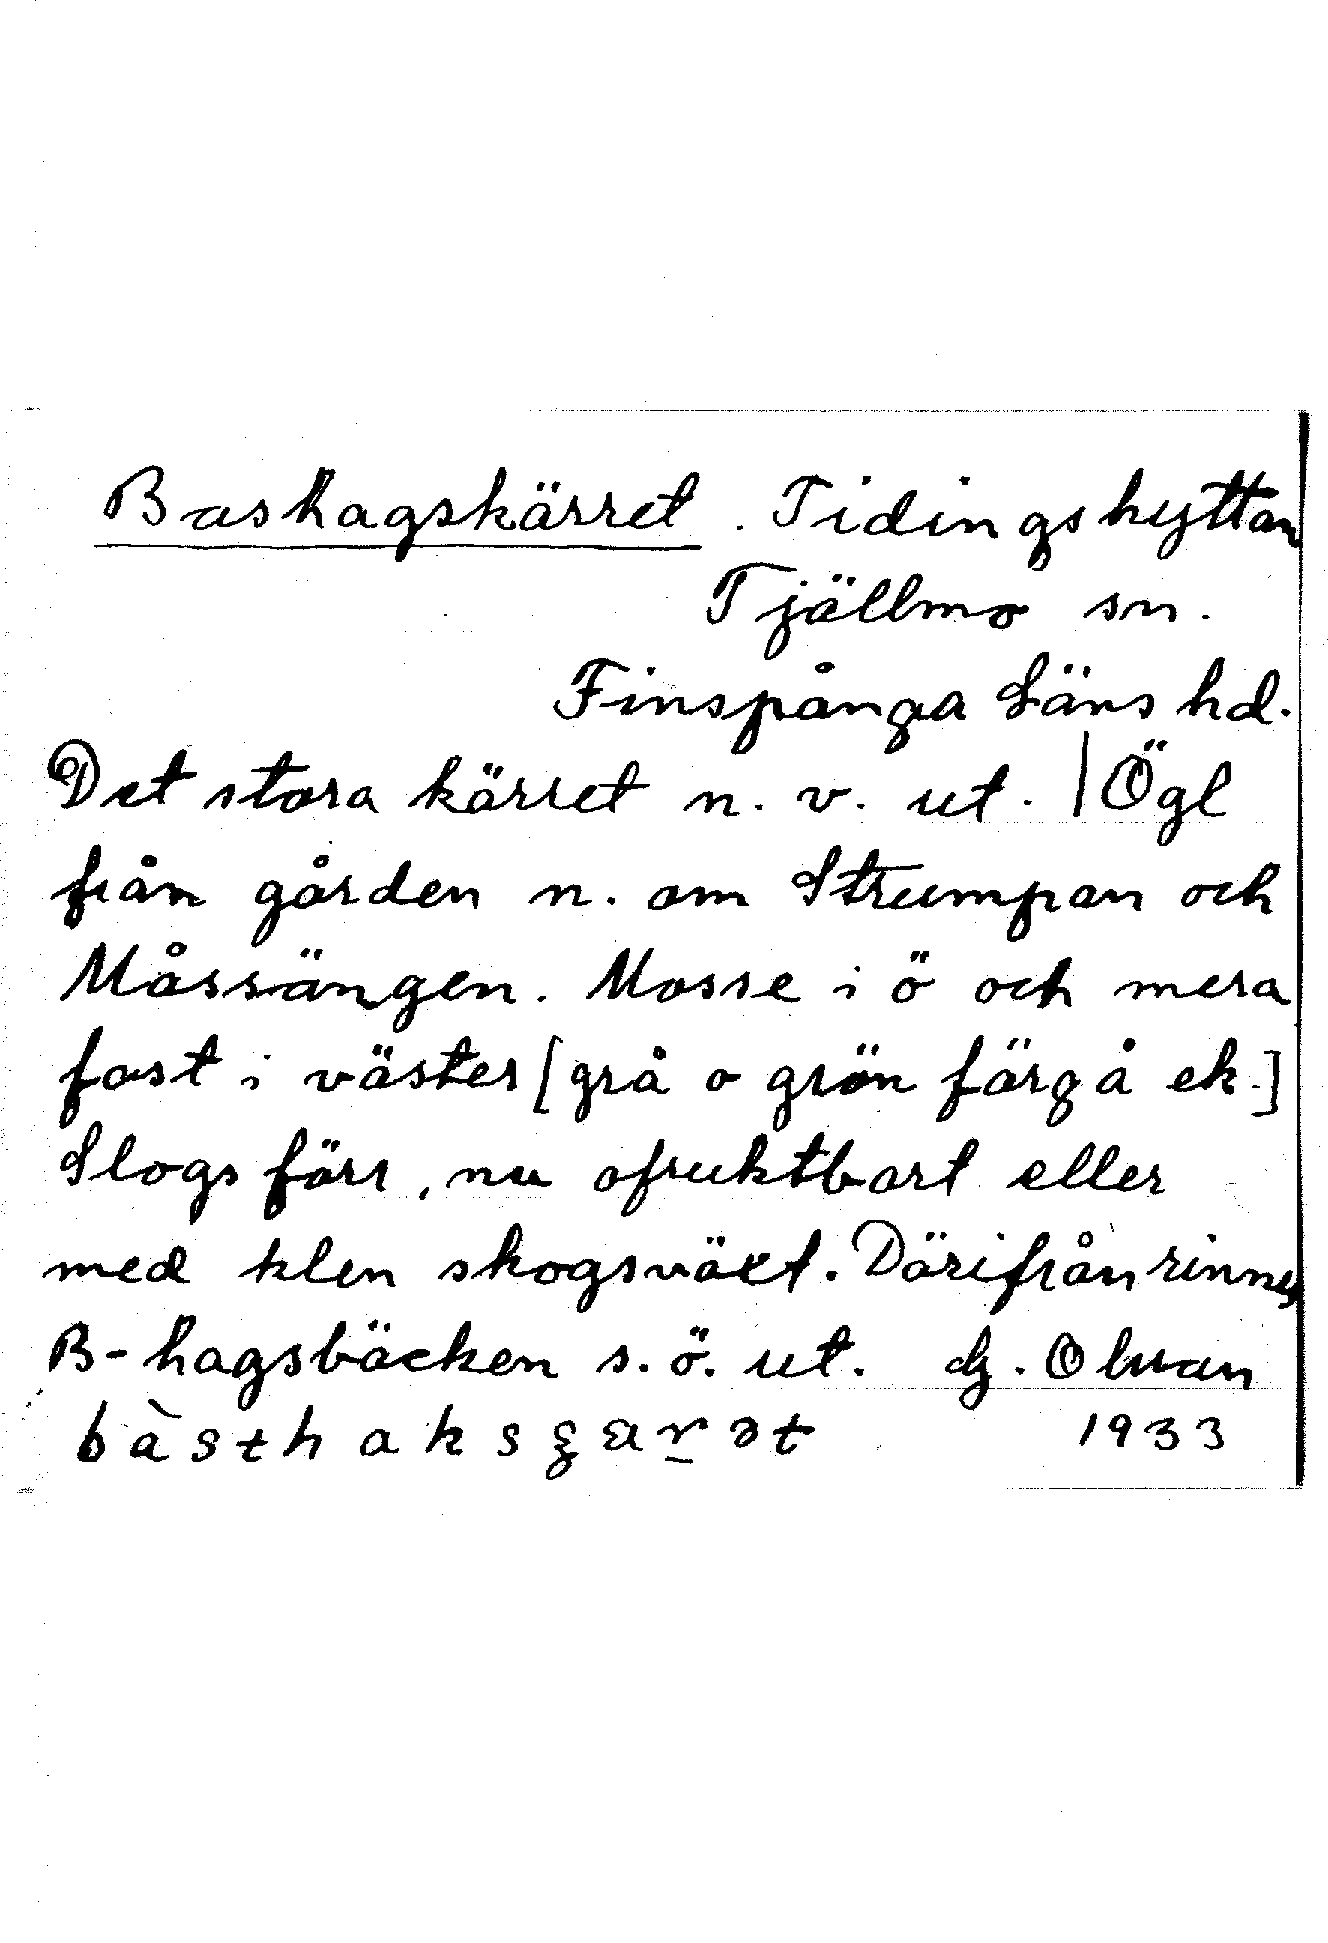 Bashagskärret. Tidingshyttan
Tjällmo sn.
Finspånga Läns hd.
Det stora kärret n. v. ut. | Ögl
från gården n. om Strumpan och
Måssängen. Mosse i ö och mera
fast i väster [grå o grön färg å ek.]
Slogs förr, nu ofruktbart eller
med klen skogsväxt. Därifrån rinner
B-hagsbäcken s. ö. ut. Olwan
1933